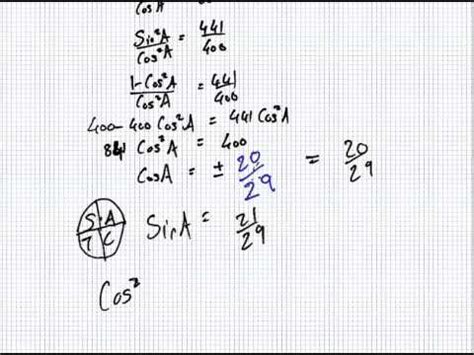 CosA
Sin²A/Cos²A = 441/400
1-Cos²A/Cos²A = 441/400
400-400Cos²A = 441Cos²A
841 Cos²A = 400
CosA = ± 20/29 = 20/29
S A
T C
SinA = 21/29
Cos²